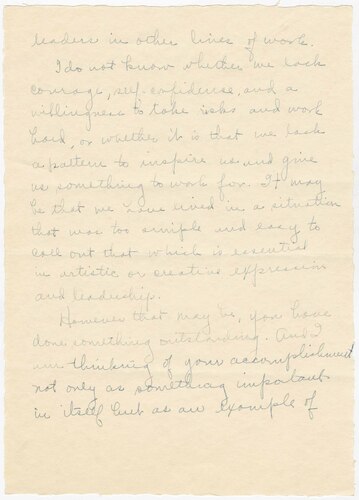 leaders in other lines of work.
I do not know whether we lack
courage, self-confidence, and a
willingness to take risks and work
hard, or whether it is that we lack
a pattern to inspire us and give
us something to work for. It may
be that we have lived in a situation
that was too simple and easy to
call out that which is essential
in artistic or creative expression
and leadership.
However that may be, you have
done something outstanding. And I
am thinking of your accomplishment
not only as something important
in itself but as an example of